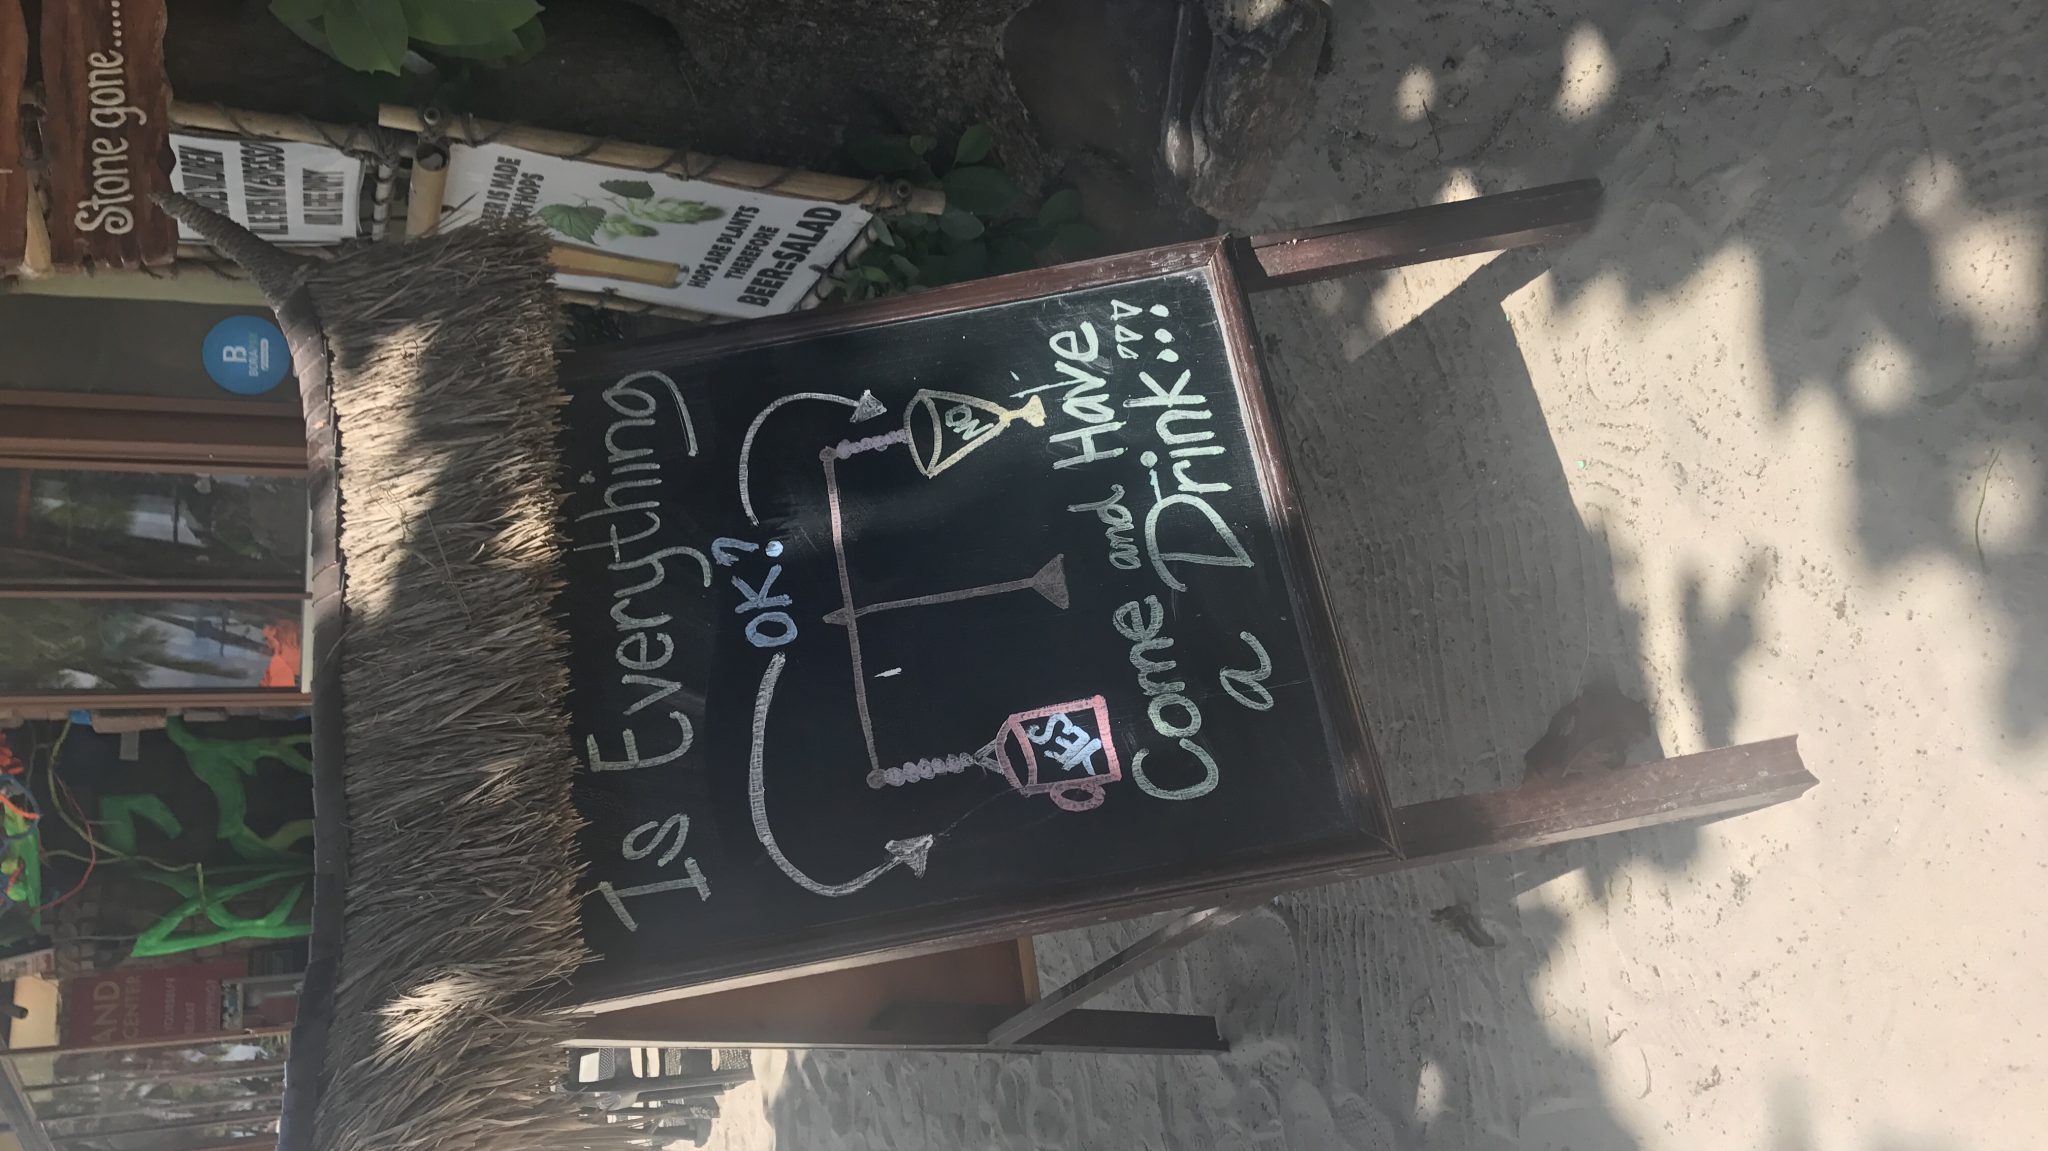 Is Everything
OK?
YES
NO
Come and Have
a Drink...
Stone gone....
HOPS ARE PLANTS
THEREFORE
BEER=SALAD
IS MADE
HOPS
B
AND
CENTER